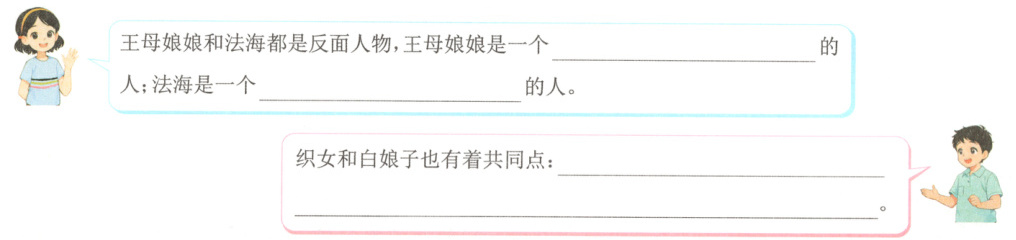 王母娘娘和法海都是反面人物,王母娘娘是一个____________________的
人;法海是一个____________________的人。
织女和白娘子也有着共同点:____________________
________________________________________。